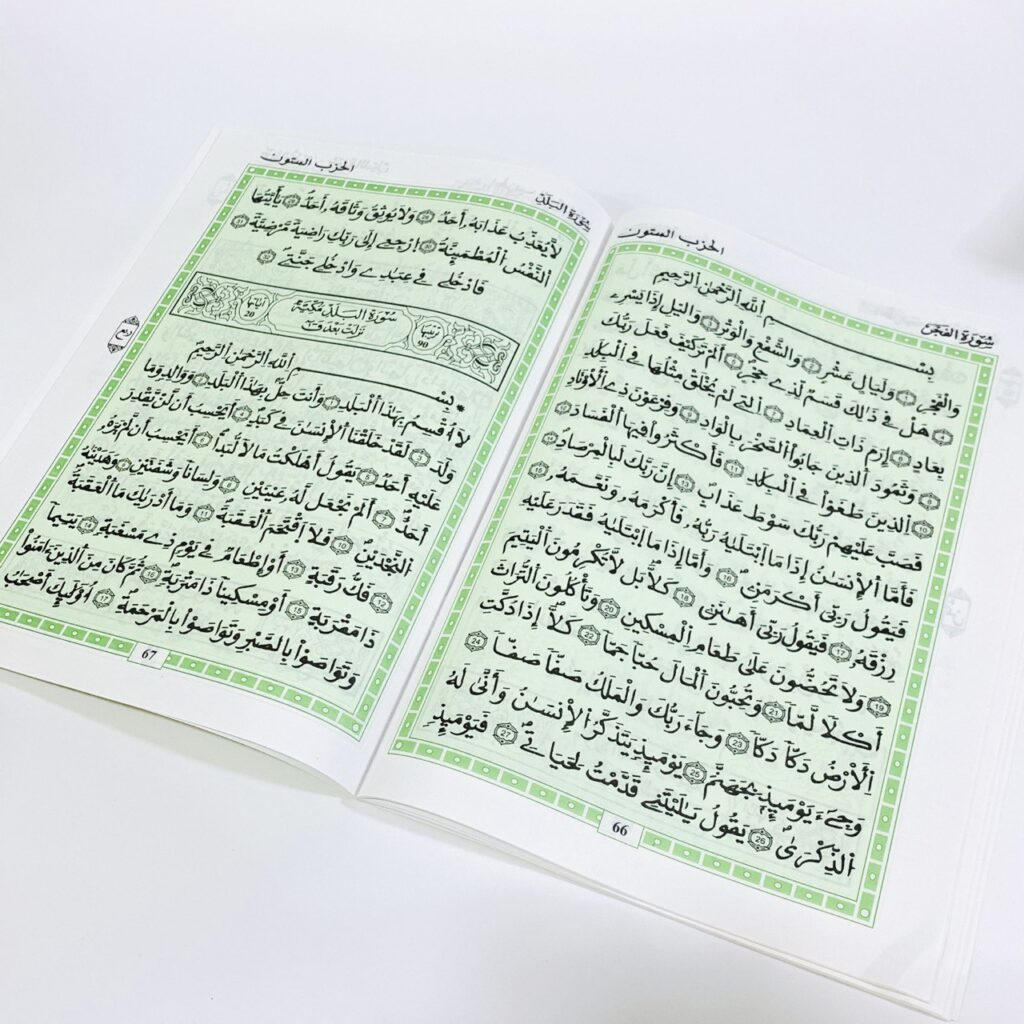 الحزب الستون سُورَةُ الفَجْرِ
بِسْمِ اللَّهِ الرَّحْمَٰنِ الرَّحِيمِ
وَالْفَجْرِ 1 وَلَيَالٍ عَشْرٍ 2 وَالشَّفْعِ وَالْوَتْرِ 3 وَالَيْلِ إِذَا يَسْرِۦ
4 هَلْ فِي ذَٰلِكَ قَسَمٌ لِّذِي حِجْرٍ 5 أَلَمْ تَرَ كَيْفَ فَعَلَ رَبُّكَ
بِعَادٍ 6 إِرَمَ ذَاتِ الْعِمَادِ 7 الَّتِي لَمْ يُخْلَقْ مِثْلُهَا فِي الْبِلَٰدِ
8 وَثَمُودَ الَّذِينَ جَابُوا الصَّخْرَ بِالْوَادِۦ 9 وَفِرْعَوْنَ ذِي الَاوْتَادِ
10 الَّذِينَ طَغَوْا فِي الْبِلَٰدِ 11 فَأَكْثَرُوا فِيهَا الْفَسَادَ 12
فَصَبَّ عَلَيْهِمْ رَبُّكَ سَوْطَ عَذَابٍ 13 اِنَّ رَبَّكَ لَبِالْمِرْصَادِ 14
فَأَمَّا الِانسَٰنُ إِذَا مَا ابْتَلَيٰهُ رَبُّهُۥ فَأَكْرَمَهُۥ وَنَعَّمَهُۥ 15
فَيَقُولُ رَبِّيَ أَكْرَمَنِۦ 16 وَأَمَّا إِذَا مَا ابْتَلَيٰهُ فَقَدَرَ عَلَيْهِ
رِزْقَهُۥ 17 فَيَقُولُ رَبِّيَ أَهَٰنَنِۦ 18 كَلَّا بَل لَّا تُكْرِمُونَ الْيَتِيمَ
19 وَلَا تَحُضُّونَ عَلَىٰ طَعَامِ الْمِسْكِينِ 20 وَتَاكُلُونَ التُّرَاثَ
أَكْلًا لَّمًّا 21 وَتُحِبُّونَ الْمَالَ حُبًّا جَمًّا 22 كَلَّا إِذَا دُكَّتِ
الَارْضُ دَكًّا دَكًّا 23 وَجَاءَ رَبُّكَ وَالْمَلَكُ صَفًّا صَفًّا 24
وَجِيءَ يَوْمَئِذٍ بِجَهَنَّمَ 25 يَوْمَئِذٍ يَتَذَكَّرُ الِانسَٰنُ وَأَنَّىٰ لَهُ
الذِّكْرَىٰ 26 يَقُولُ يَٰلَيْتَنِي قَدَّمْتُ لِحَيَاتِي 27 فَيَوْمَئِذٍ
66
الحزب الستون سُورَةُ البَلَدِ
لَّا يُعَذِّبُ عَذَابَهُۥ أَحَدٌ 28 وَلَا يُوثِقُ وَثَاقَهُۥ أَحَدٌ 29 يَٰأَيَّتُهَا
النَّفْسُ الْمُطْمَئِنَّةُ 30 ارْجِعِي إِلَىٰ رَبِّكِ رَاضِيَةً مَّرْضِيَّةً 31
فَادْخُلِي فِي عِبَٰدِي وَادْخُلِي جَنَّتِي 32
سُورَةُ البَلَدِ مَكِّيَّة
ترتيبها 90 نزلت بعد ق آياتها 20
ربع
بِسْمِ اللَّهِ الرَّحْمَٰنِ الرَّحِيمِ
لَا أُقْسِمُ بِهَٰذَا الْبَلَدِ 1 وَأَنتَ حِلٌّ بِهَٰذَا الْبَلَدِ 2 وَوَالِدٍ وَمَا
وَلَدَ 3 لَقَدْ خَلَقْنَا الِانسَٰنَ فِي كَبَدٍ 4 اَيَحْسِبُ أَن لَّنْ يَّقْدِرَ
عَلَيْهِ أَحَدٌ 5 يَقُولُ أَهْلَكْتُ مَالًا لُّبَدًا 6 اَيَحْسِبُ أَن لَّمْ يَرَهُۥ
أَحَدٌ 7 اَلَمْ نَجْعَل لَّهُۥ عَيْنَيْنِ 8 وَلِسَانًا وَشَفَتَيْنِ 9 وَهَدَيْنَٰهُ
النَّجْدَيْنِ 10 فَلَا اقْتَحَمَ الْعَقَبَةَ 11 وَمَا أَدْرَيٰكَ مَا الْعَقَبَةُ
12 فَكُّ رَقَبَةٍ 13 اَوِ اطْعَٰمٌ فِي يَوْمٍ ذِي مَسْغَبَةٍ 14 يَتِيمًا
ذَا مَقْرَبَةٍ 15 اَوْ مِسْكِينًا ذَا مَتْرَبَةٍ 16 ثُمَّ كَانَ مِنَ الَّذِينَ ءَامَنُوا
وَتَوَاصَوْا بِالصَّبْرِ وَتَوَاصَوْا بِالْمَرْحَمَةِ 17 أُوْلَٰئِكَ أَصْحَٰبُ
67